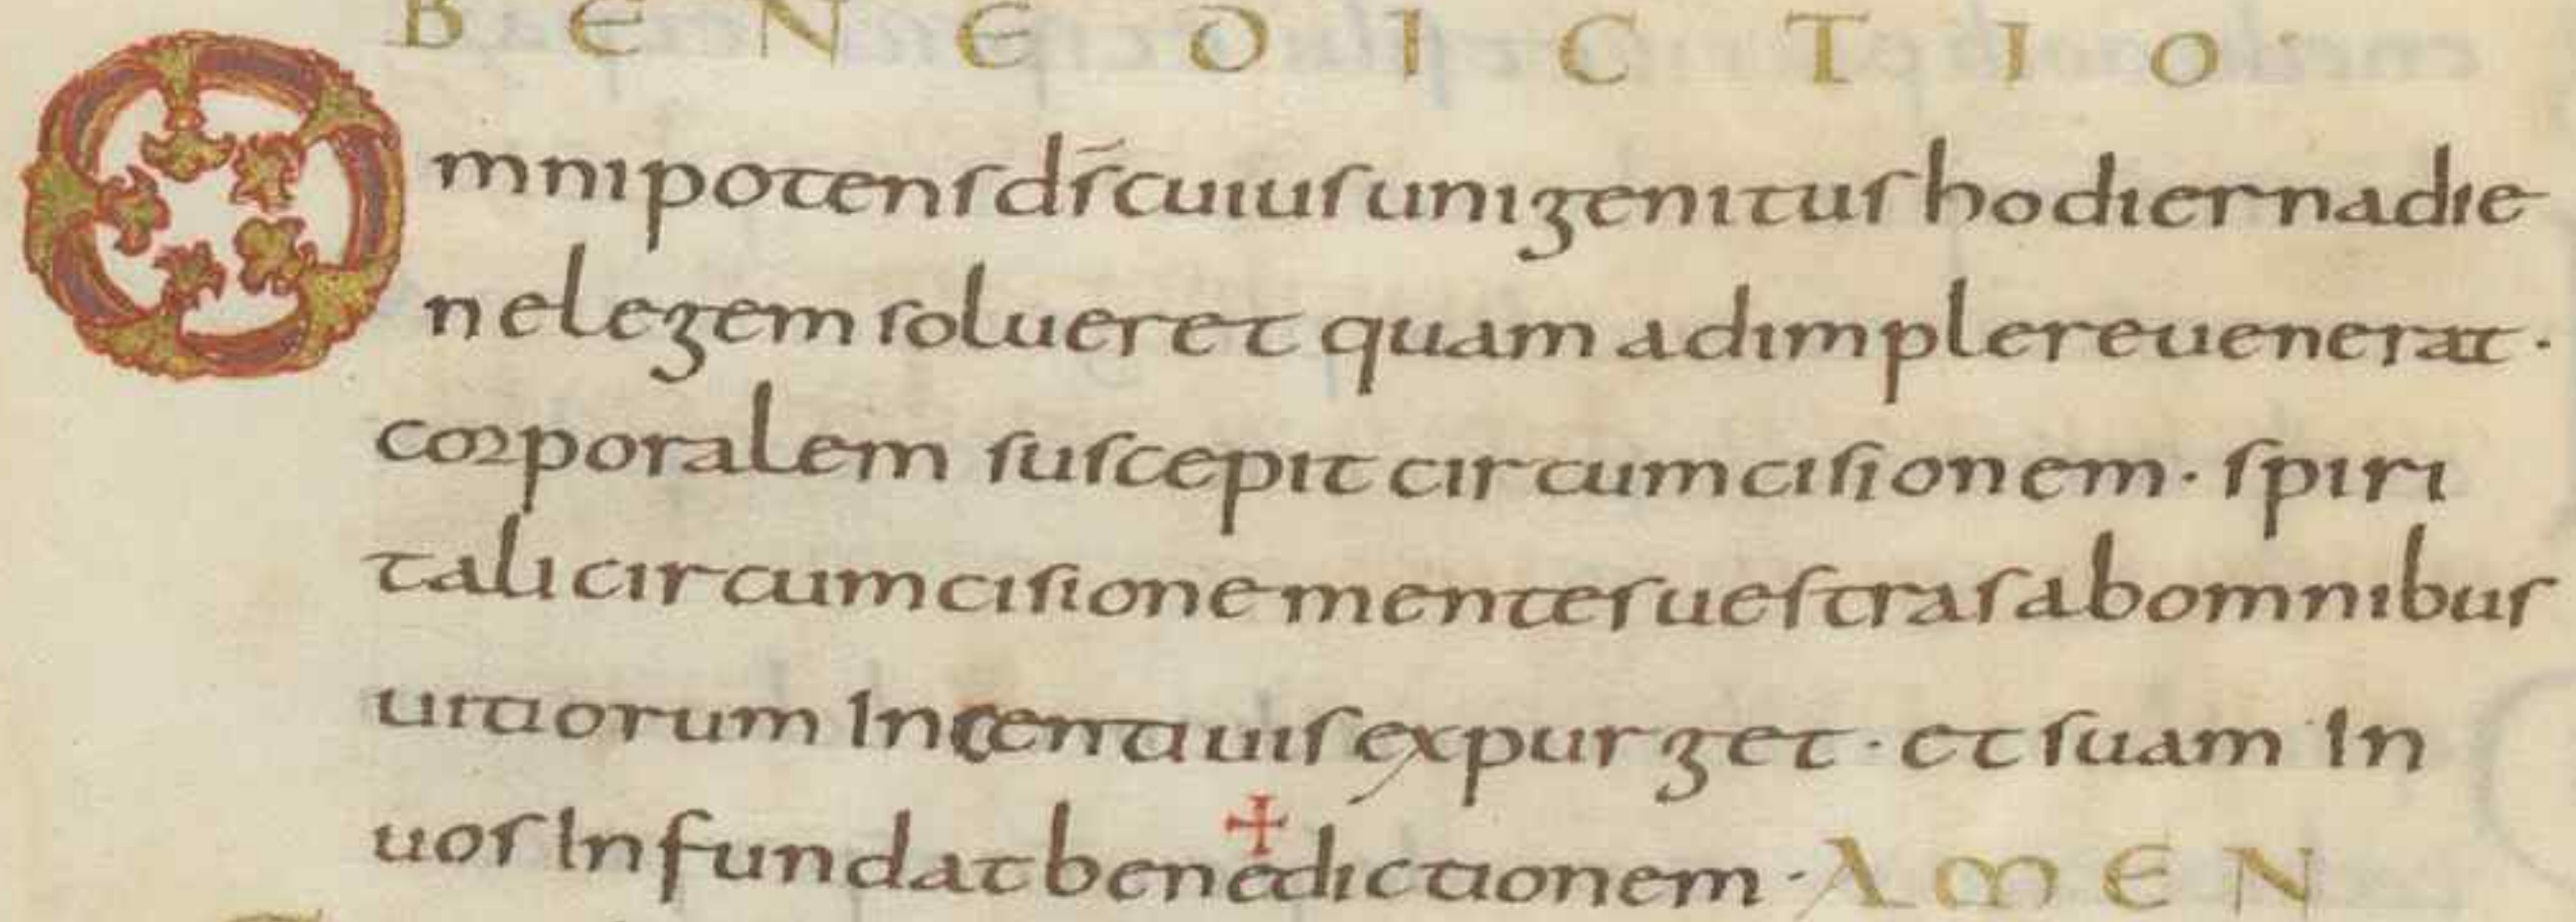 BENEDICTIO
Omnipotens d̄s cuius unigenitus hodierna die
ne legem solueret quam adimplere uenerat·
corporalem suscepit circumcisionem· spiri
tali circumcisione mentes uestras ab omnibus
uitiorum Incentiuis expurget· et suam In
uos Infundat benedictionem· AMEN